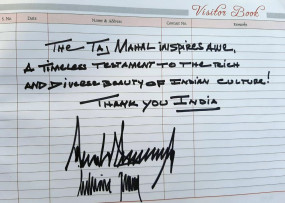 Visitor Book
S. No. Date Name & Address Contact No. Remarks
THE TAJ MAHAL INSPIRES AWE,
A TIMELESS TESTAMENT TO THE RICH
AND DIVERSE BEAUTY OF INDIAN CULTURE!
THANK YOU INDIA